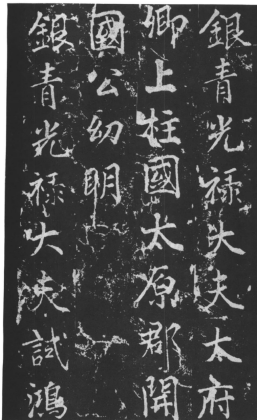 銀青光祿大夫太府
卿上柱國太原郡開
國公幼明
銀青光祿大夫試鴻